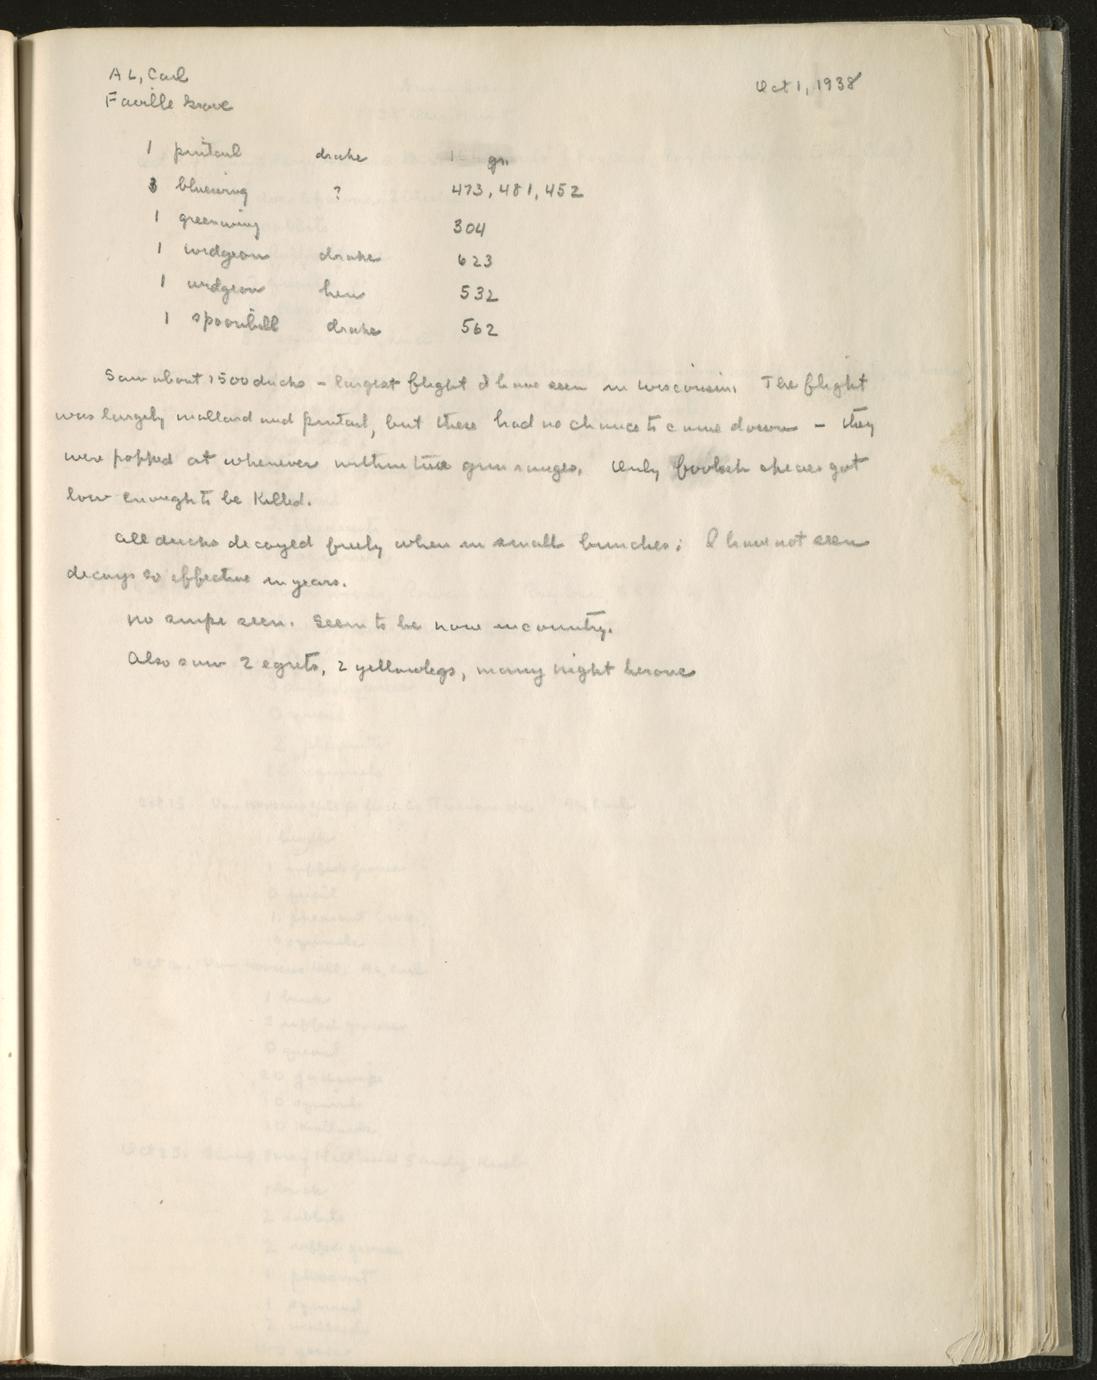 AL, Carl
Oct 1, 1938
Faville Grove
1 pintail drake gr.
3 bluewing ? 473, 481, 452
1 greenwing 304
1 widgeon drake 623
1 widgeon hen 532
1 spoonbill drake 562
Saw about 1500 ducks - largest flight I have seen in Wisconsin. The flight
was largely mallard and pintail, but these had no chance to come down - they
were popped at whenever within two gun ranges. Only foolish species got
low enough to be killed.
All ducks decoyed freely when in small bunches; I have not seen
decoys so effective in years.
No snipe seen. Seem to be none in country.
Also saw 2 egrets, 2 yellowlegs, many night herons